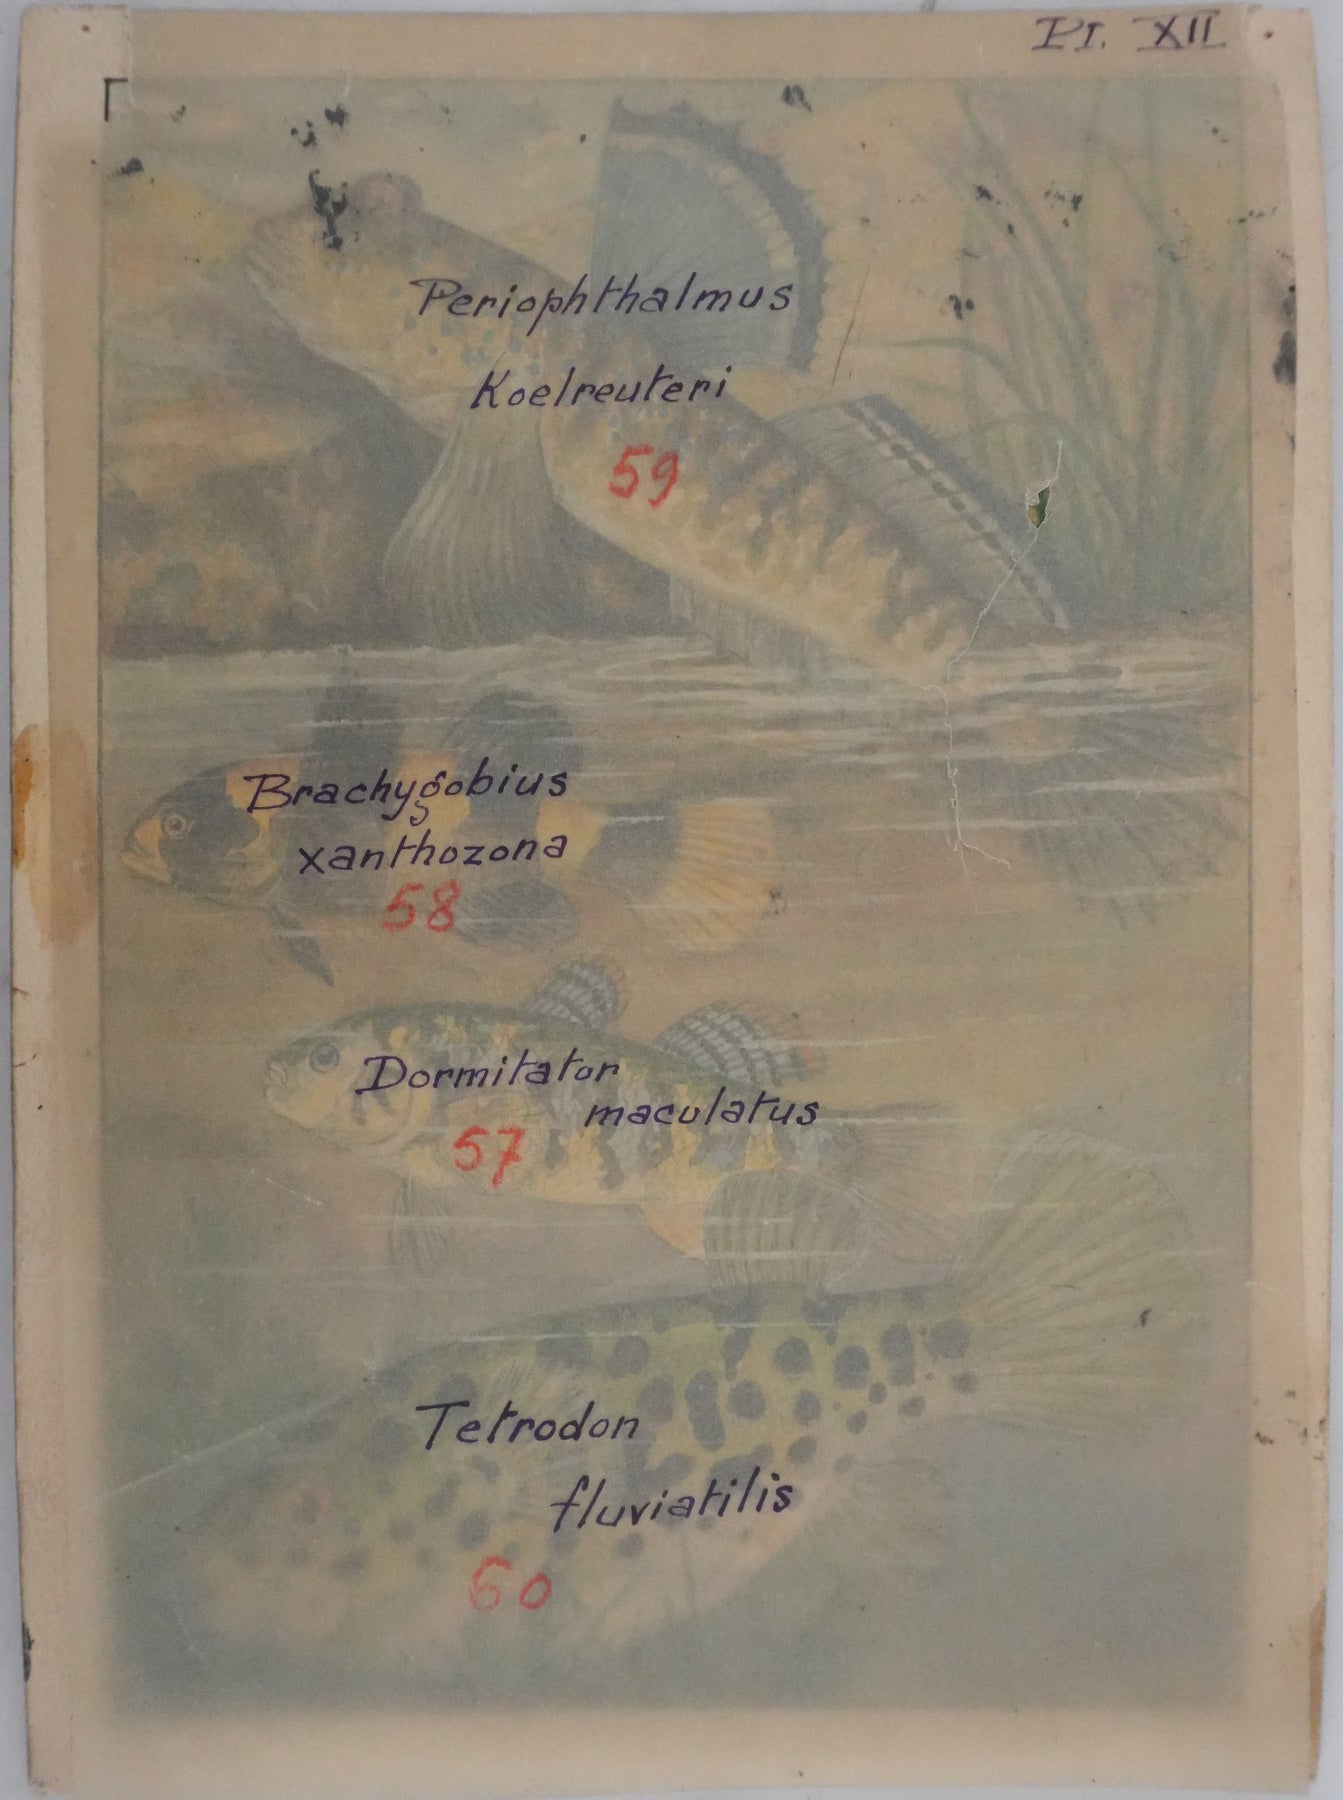 Pl. XII
Periophthalmus
Koelreuteri
59
Brachygobius
xanthozona
58
Dormitator
maculatus
57
Tetrodon
fluviatilis
60